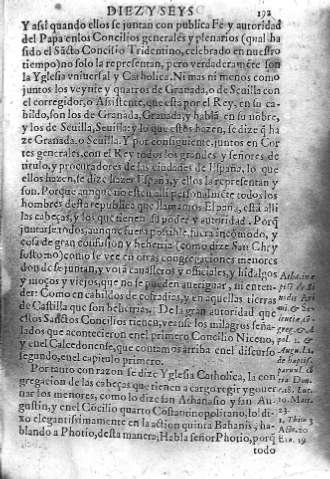 DIEZ Y SEYS 192
Y assi quando ellos se juntan con publica Fe y autoridad
del Papa en los Concilios generales y plenarios (qual ha
sido el Sãcto Concilio Tridentino, celebrado en nuestro
tiempo) no solo la representan, pero verdaderamẽte son
la Yglesia vniuersal y Catholica. Ni mas ni menos como
juntos los veynte y quatros de Granada, o de Seuilla con
el corregidor, o Asistente, que esta por el Rey, en su ca-
bildo, son los de Granada, Granada, y hablã en su nõbre,
y los de Seuilla, Seuilla: y lo que estos hazen, se dize q̃ ha
ze Granada, o Seuilla. Y por consiguiente, juntos en Cor
tes generales, con el Rey todos los grandes y señores de
titulo, y procuradores de las ciudades de España, lo que
ellos hazen, se dize hazer España, y ellos la representan y
son. Porque aunque no estẽ alli personalmẽte todos los
hombres desta republica que llamamos España, està alli
las cabeças, y los que tienen su poder y autoridad. Porq̃
juntarse todos, aunque fuera possible, fuera incòmodo, y
cosa de gran confusion y behetria (como dize San Chry
sostomo) como se vee en otras congregaciones menores
donde se juntan, y votã caualleros y officiales, y hidalgos
y moços y viejos, que no se pueden aueriguar, ni enten-
der: Como en cabildos de cofradias, y en aquellas tierras
de Castilla que son behetrias. De la gran autoridad que
estos Sanctos Concilios tienen, veanse los milagros seña-
lados que acontecieron en el primero Concilio Niceno,
y en el Calcedonense, que contamos arriba en el discurso
segundo, en el capitulo primero.
Por tanto con razon se dize Yglesia Catholica, la con
gregacion de las cabeças que tienen a cargo regir y gouer
nar los menores, como lo dizen san Athanasio y san Au
gustin, y en el Cõcilio quarto Costantinopolitano, lo di-
xo elegantissimamente en la action quinta Bahanis, ha-
blando a Photio, desta manera, Habla señor Photio, porq̃
todo